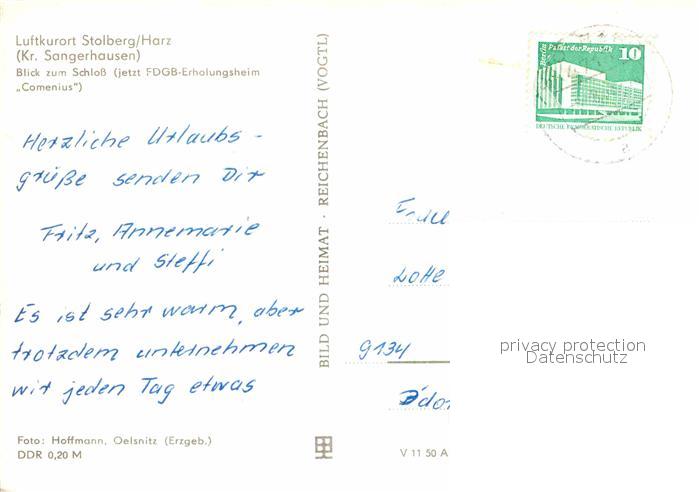 Luftkurort Stolberg/Harz
(Kr. Sangerhausen)
Blick zum Schloß (jetzt FDGB-Erholungsheim
„Comenius“)
Herzliche Urlaubs-
grüße senden Dir
Fritz, Annemarie
und Steffi
Es ist sehr warm, aber
trotzdem unternehmen
wir jeden Tag etwas
Foto: Hoffmann, Oelsnitz (Erzgeb.)
DDR 0,20 M
BILD UND HEIMAT · REICHENBACH (VOGTL)
Berlin Palast der Republik
10
DEUTSCHE DEMOKRATISCHE REPUBLIK
Lotte
9134
privacy protection
Datenschutz
V 11 50 A